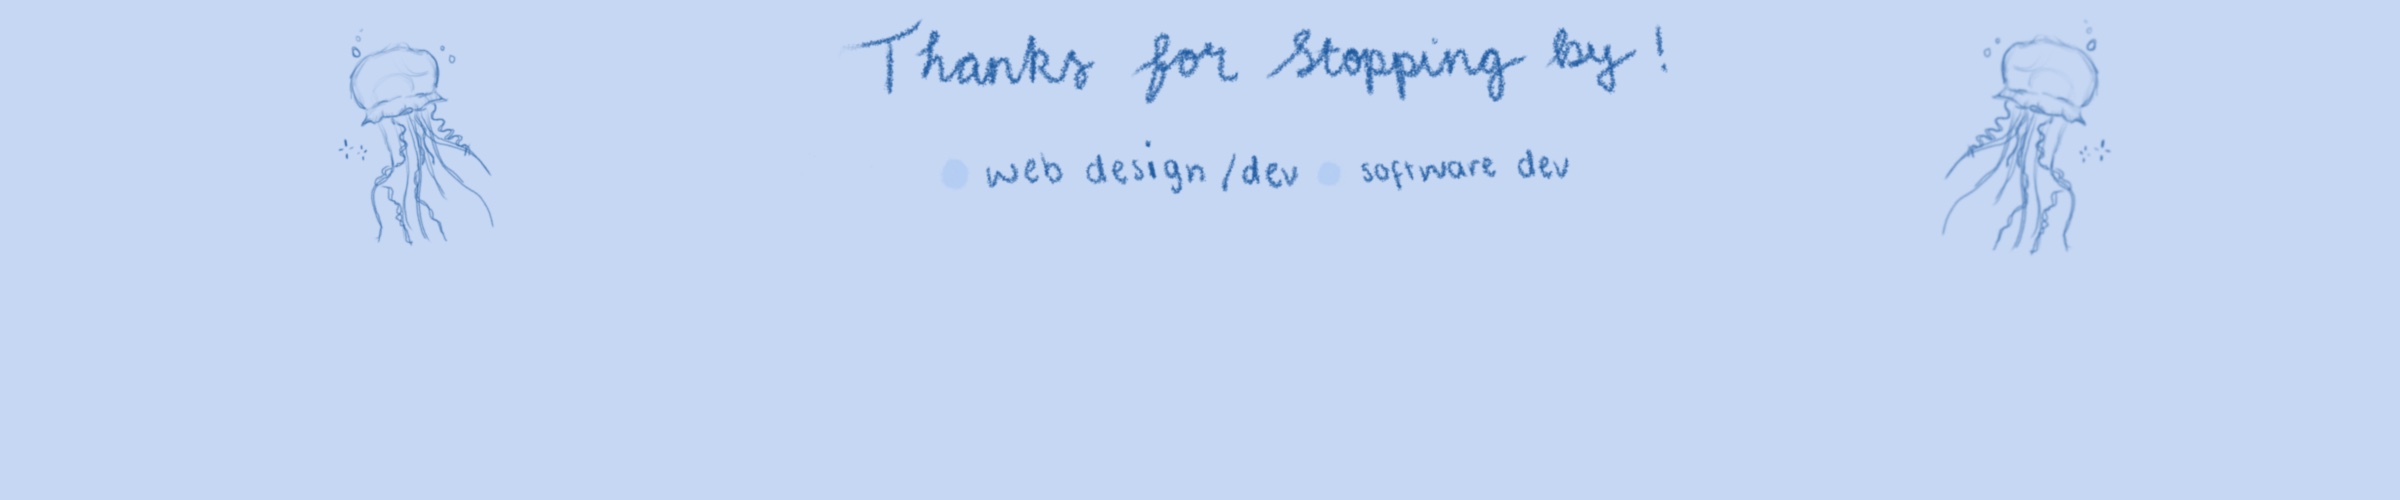 Thanks for Stopping by !
web design /dev software dev